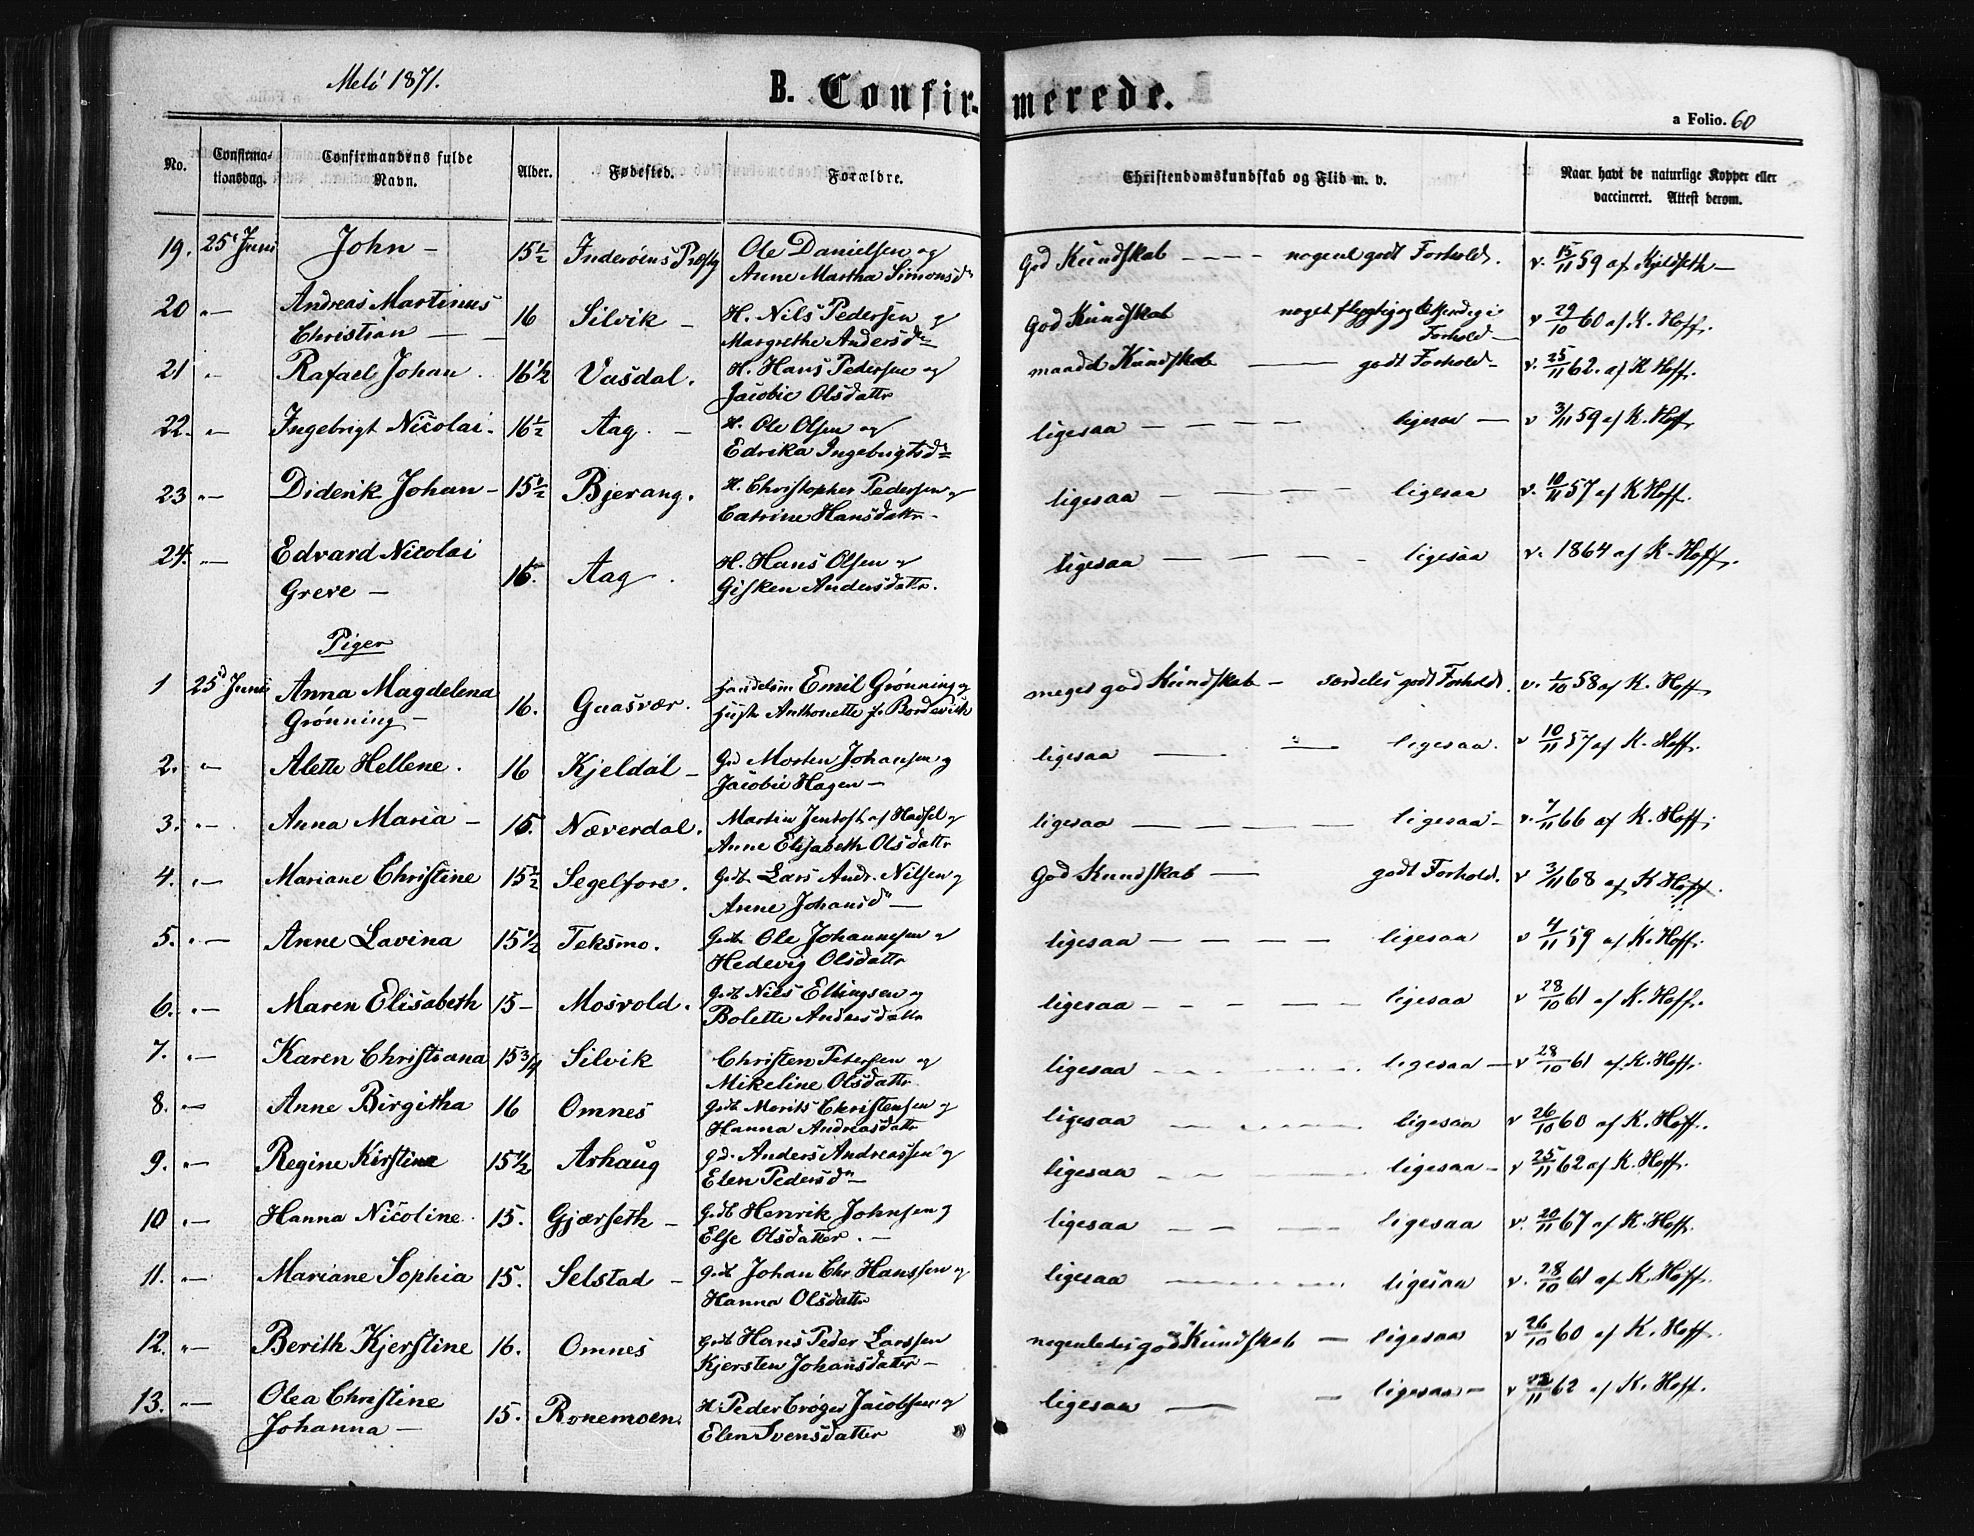 Melö 1871.
B. Confirmerede.
a Folio. 60
No. Confirmationsdag. Confirmandens fulde Navn. Alder. Fødested. Forældre. Christendomskundskab og Flid m. v. Naar havt de naturlige Kopper eller vaccineret. Attest derom.
19. 25de Juni John – 15½ Inderöens Præstg Ole Danielsen og God Kundskab – – – – nogenl. godt Forhold. v. 15/11 59 af Kjeldseth –
Anne Martha Simonsdr
20 " – Andreas Martinus 16 Silvik – H. Nils Pedersen og God Kundskab noget flygtig og v 29/10 60 af K. Hoff.
Christian – – Margrethe Andersdr Forhold –
21 " Rafael Johan. 16½ Vasdal. H. Hans Pedersen og maadel Kundskab – godt Forhold – v. 25/11 62. af K Hoff.
Jacobie Olsdattr
22. " – Ingebrigt Nicolai. 16½ Aag. – H. Ole Olsen og ligesaa – – – – ligesaa – v 3/11 59 af K. Hoff.
Edrika Ingebrigtsdr
23 " – Diderik Johan – 15½ Bjerang. H. Christopher Pedersen og ligesaa – – – – ligesaa v. 10/11 57 af K Hoff.
Catrine Hansdattr –
24. " – Edvard Nicolai 15. Aag. H. Hans Olsen og ligesaa – – – – ligesaa v. 1864 af K. Hoff.
Greve – Gisken Andersdattr.
Piger
1 25d Juni Anna Magdelena 16. Gaasvær. Handelsm Emil Grønning og meget god Kundskab – særdeles godt Forhold. v. 1/10 58 af K. Hoff.
Grønning – Hustr Anthonette f. Bordevick
2. " Alette Hellene. 16 Kjeldal – Gd Morten Johansen og ligesaa – – ligesaa. v 10/11 57 af K. Hoff.
Jacobie Hagen –
3. " – Anna Maria – 15. Næverdal. Martin Jentoft af Hadsel og ligesaa – – – – ligesaa – v. 7/11 66 af K. Hoff.
Anne Elisabeth Olsdattr
4. " – Mariane Christine 15½ Segelfore. Gdb Lars Andr. Nilsen og God Kundskab – godt Forhold. v 3/11 68 af K Hoff.
Anne Johansdr –
5. " – Anne Lavina 15½ Teksmo. Gdb Ole Johannesen og ligesaa – – – – ligesaa v 4/11 59 af K. Hoff.
Hedevig Olsdattr
6. " – Maren Elisabeth 15 – Mosvold. Gdb Nils Ellingsen og ligesaa – – – – ligesaa v 28/10 61 af K. Hoff.
Bolette Andersdattr
7. " – Karen Christiana 15¾ Silvik Christen Petersen og ligesaa – – – – ligesaa – v 28/10 61 af K. Hoff.
Mikeline Olsdattr
8. " – Anne Birgitha 16 Omnes Gdb Morits Christensen og ligesaa – – – – ligesaa v 26/10 60 af K. Hoff.
Hanna Andreasdattr
9. " – Regine Kirstine 15½ Arhaug Gd. Anders Andreassen og ligesaa – – – – ligesaa – v 25/11 62 af K. Hoff.
Elen Pedersdr –
10 " – Hanna Nicoline. 15. Gjærseth – Gdb Henrik Johnsen og ligesaa – – – – ligesaa v. 20/11 67 af K. Hoff.
Else Olsdatter. –
11. " – Mariane Sophia 15. Selstad – Gdb Johan Chr. Hanssen og ligesaa – – – – ligesaa v. 28/10 61 af K. Hoff.
Hanna Olsdattr
12. " – Berith Kjerstine 16. Omnes Gdb Hans Peder Larssen nogenledes god Kundskab – ligesaa v 26/10 60 af K. Hoff.
Kjersten Johansdattr –
13. " – Olea Christine 15. Ronemoen H. Peder Crøger Jacobsen og ligesaa – – ligesaa – v /11 62 af K. Hoff.
Johanna – Elen Svensdatter